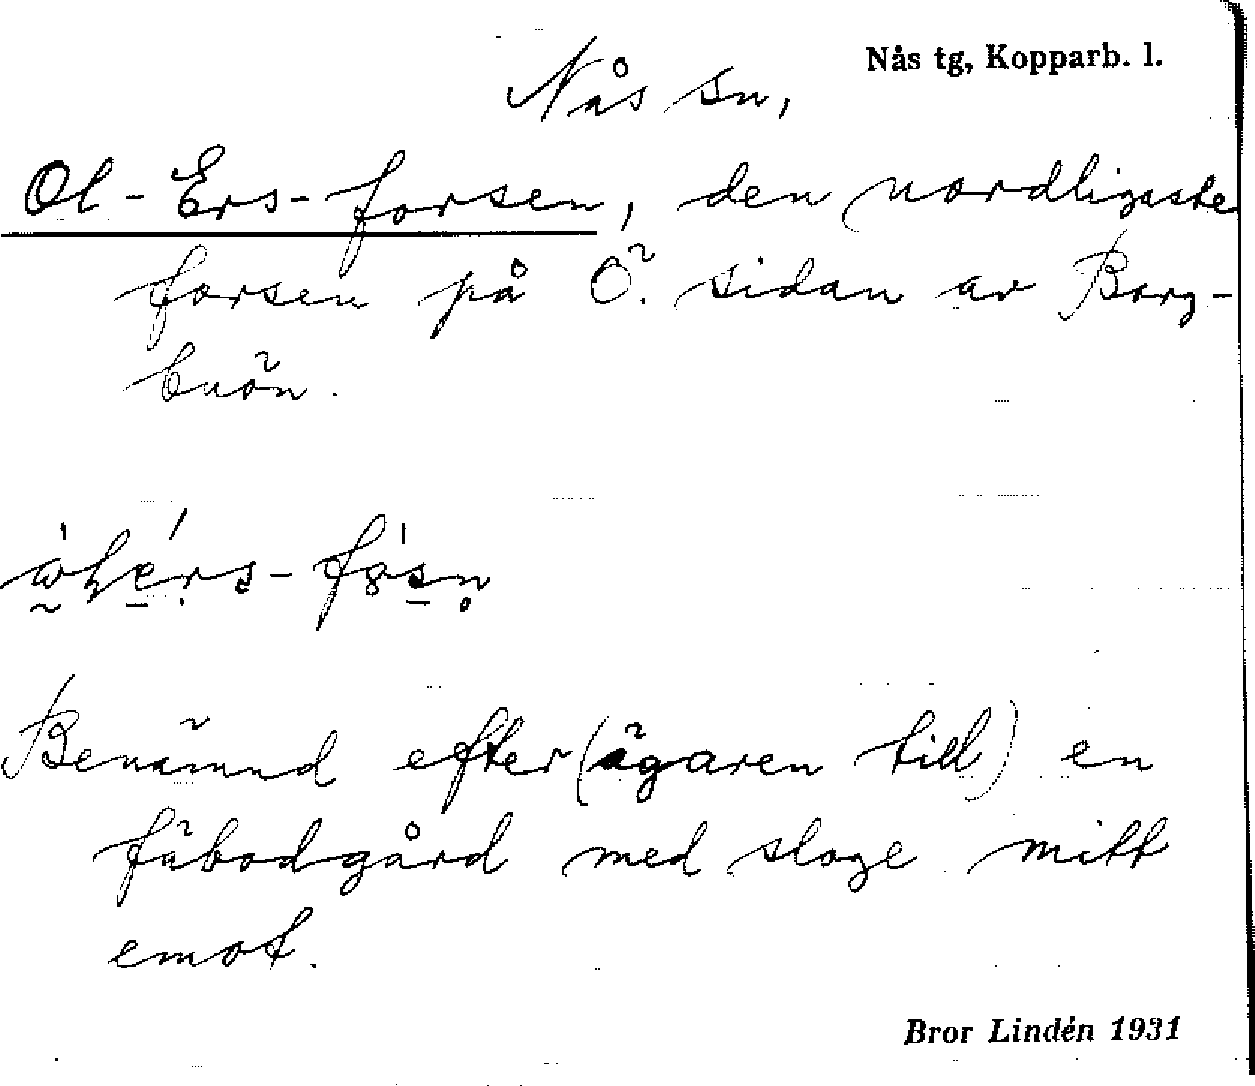 Nås tg, Kopparb. l.
Nås sn,
Ol-Ers-forsen, den nordligaste
forsen på Ö. sidan av Borg-
buön.
Benämnd efter (ägaren till) en
fäbodgård med sloge mitt
emot.
Bror Lindén 1931